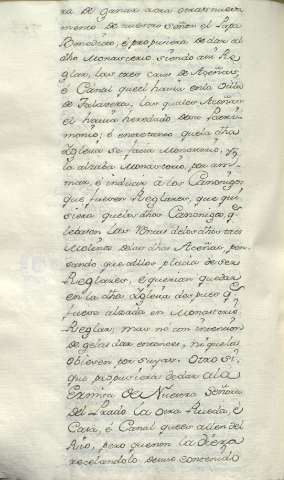 ra de ganar
mento de nuestro Señor el Papa
Benedicto, é propusiera de dar al
dho Monasterio siendo assi Re
glar, las tres casas de Aceñas,
é Canal que él havia en la Villa
de Talavera, las quales Aceñas
él havia heredado de su Patri
monio; é entretanto que la dha
Iglesia se facia Monasterio,
la alzaba Monasterio, por ani
mar, é inducir a los Canonigos
que fuesen Reglares, que qui
siera que los dhos Canonigos
las Rentas de los dhos tres
Molinos de las dhas Aceñas, pen
sando que a ellos placia de ser
Reglares, é querian quedar
en la dha Iglesia despues q.
fuese alzada en Monasterio
Reglar, mas nó con intencion
de gelas dar entonces, ni que las
obiesen por suyas. Otro si,
que propusiera de dar a la
Ermita de Nuestra Señora
del Prado la otra Rueda, é
Casa, é Canal que es allen del
Rio, pero que non la diera
recelandolo de su contenido